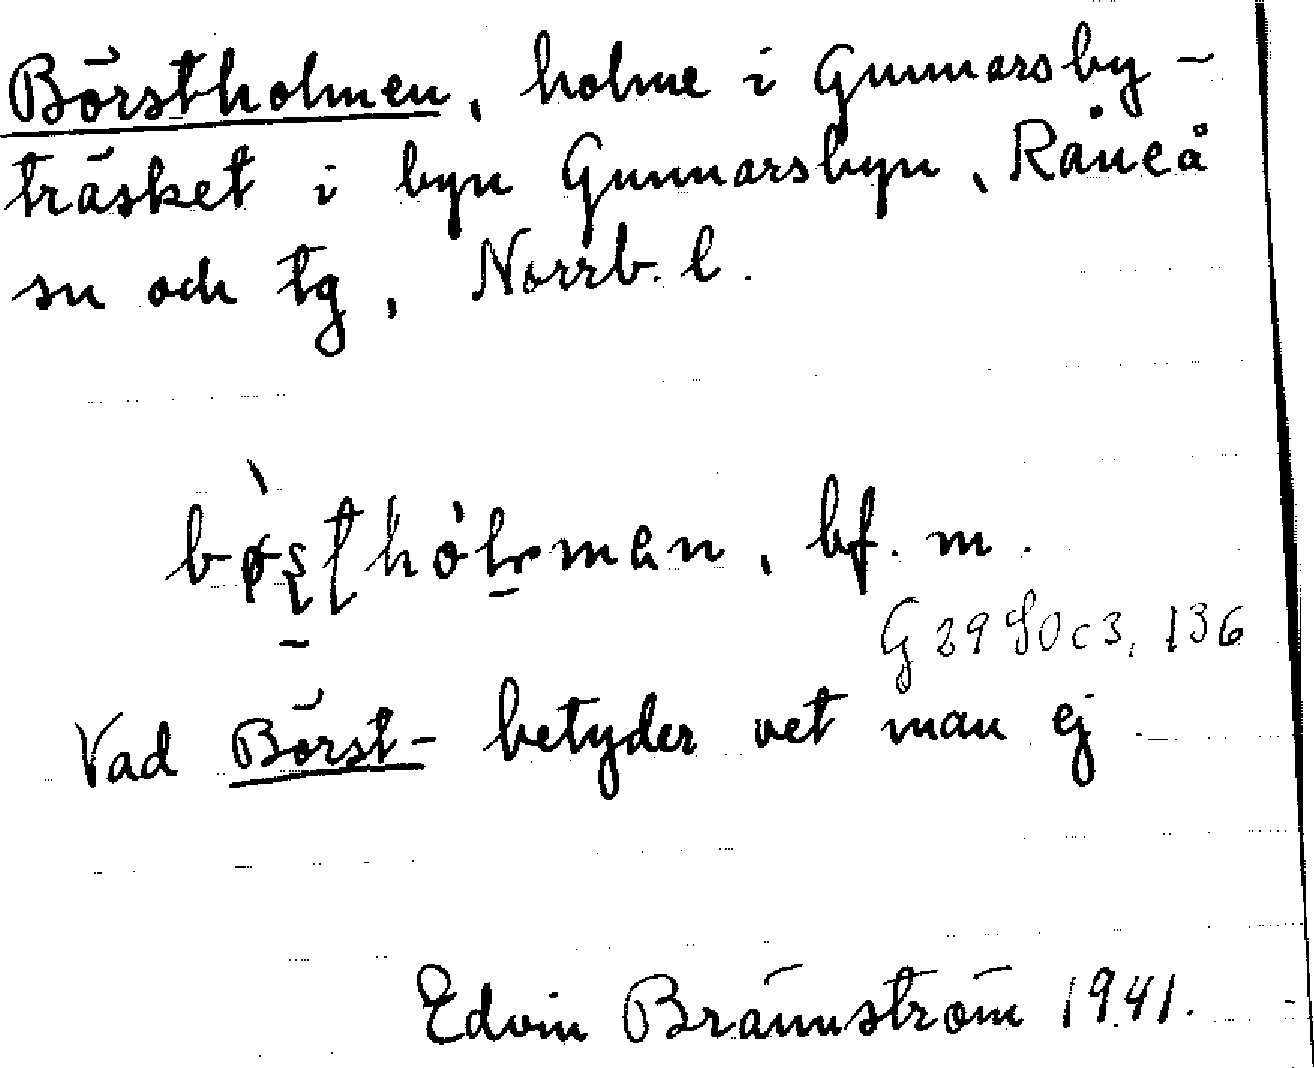 Börstholmen, holme i Gunnarsby-
träsket i byn Gunnarsbyn, Råneå
sn och tg, Norrb. l.
bf. m.
G 29 SO c 3, 136
Vad Börst- betyder vet man ej
Edvin Brännström 1941.